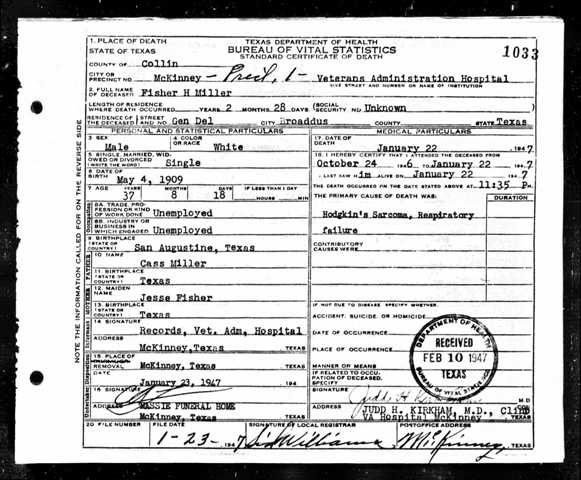 1033
1. PLACE OF DEATH TEXAS DEPARTMENT OF HEALTH
STATE OF TEXAS BUREAU OF VITAL STATISTICS
STANDARD CERTIFICATE OF DEATH
COUNTY OF Collin
CITY OR PRECINCT NO. McKinney - Prect. 1 - Veterans Administration Hospital
GIVE STREET AND NUMBER OR NAME OF INSTITUTION
2. FULL NAME OF DECEASED Fisher H Miller
LENGTH OF RESIDENCE WHERE DEATH OCCURRED YEARS 2 MONTHS 28 DAYS (SOCIAL SECURITY NO. Unknown
RESIDENCE OF THE DECEASED STREET AND NO. Gen Del CITY Broaddus COUNTY STATE Texas
PERSONAL AND STATISTICAL PARTICULARS MEDICAL PARTICULARS
3. SEX Male 4. COLOR OR RACE White
17. DATE OF DEATH January 22 1947
5. SINGLE, MARRIED, WIDOWED OR DIVORCED (WRITE THE WORD) Single
18. I HEREBY CERTIFY THAT I ATTENDED THE DECEASED FROM
October 24 1946 TO January 22 1947
6. DATE OF BIRTH May 4, 1909
I LAST SAW im ALIVE ON January 22 1947
THE DEATH OCCURRED ON THE DATE STATED ABOVE AT 11:35 P M.
7. AGE YEARS 37 MONTHS 8 DAYS 18 IF LESS THAN 1 DAY HOURS MIN
THE PRIMARY CAUSE OF DEATH WAS: DURATION
8A. TRADE, PROFESSION OR KIND OF WORK DONE Unemployed
Hodgkin's Sarcoma, Respiratory
8B. INDUSTRY OR BUSINESS IN WHICH ENGAGED Unemployed
failure
9. BIRTHPLACE (STATE OR COUNTRY) San Augustine, Texas
CONTRIBUTORY CAUSES WERE:
FATHER
10 NAME Cass Miller
11. BIRTHPLACE (STATE OR COUNTRY) Texas
MOTHER
12. MAIDEN NAME Jesse Fisher
13. BIRTHPLACE (STATE OR COUNTRY) Texas
IF NOT DUE TO DISEASE, SPECIFY WHETHER:
ACCIDENT, SUICIDE, OR HOMICIDE
14. SIGNATURE Records, Vet. Adm, Hospital
DATE OF OCCURRENCE
ADDRESS McKinney,Texas TEXAS
PLACE OF OCCURRENCE
15. PLACE OF REMOVAL McKinney, Texas TEXAS
MANNER OR MEANS
DATE January 23, 1947 194
IF RELATED TO OCCUPATION OF DECEASED, SPECIFY
16. SIGNATURE
SIGNATURE Judd H Kirkham M D
ADDRESS MASSIE FUNERAL HOME
McKinney, Texas TEXAS
ADDRESS JUDD H. KIRKHAM, M.D., Clind
VA Hospital McKinney TEXAS
20 FILE NUMBER FILE DATE 1-23-1947 SIGNATURE OF LOCAL REGISTRAR Williams POSTOFFICE ADDRESS McKinney, TEXAS
DEPARTMENT OF HEALTH
RECEIVED
FEB 10 1947
TEXAS
BUREAU OF VITAL STATISTICS
NOTE THE INFORMATION CALLED FOR ON THE REVERSE SIDE